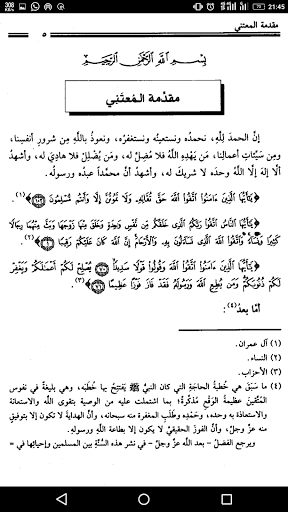 308 B/s
21:45
مقدمة المعتني
٥
بِسْمِ اللَّهِ الرَّحْمَنِ الرَّحِيمِ
مقدمة المعتَنِي
إنَّ الحمدَ للهِ، نحمدُه ونستعينُه ونستغفرُه، ونعوذُ باللهِ مِن شرورِ أنفسِنا،
ومِن سيّئاتِ أعمالِنا، مَن يَهْدِهِ اللَّهُ فلا مُضِلَّ له، ومَن يُضْلِلْ فلا هاديَ له، وأشهدُ
ألَّا إلهَ إلَّا اللَّهُ وحدَه لا شريكَ له، وأشهدُ أنَّ محمَّداً عبدُه ورسولُه.
﴿يَٰٓأَيُّهَا الَّذِينَ ءَامَنُوا۟ اتَّقُوا۟ اللَّهَ حَقَّ تُقَاتِهِۦ وَلَا تَمُوتُنَّ إِلَّا وَأَنتُم مُّسْلِمُونَ ١٠٢﴾(١).
﴿يَٰٓأَيُّهَا النَّاسُ اتَّقُوا۟ رَبَّكُمُ الَّذِى خَلَقَكُم مِّن نَّفْسٍ وَٰحِدَةٍ وَخَلَقَ مِنْهَا زَوْجَهَا وَبَثَّ مِنْهُمَا رِجَالًا
كَثِيرًا وَنِسَآءً وَاتَّقُوا۟ اللَّهَ الَّذِى تَسَآءَلُونَ بِهِۦ وَالْأَرْحَامَ إِنَّ اللَّهَ كَانَ عَلَيْكُمْ رَقِيبًا ١﴾(٢).
﴿يَٰٓأَيُّهَا الَّذِينَ ءَامَنُوا۟ اتَّقُوا۟ اللَّهَ وَقُولُوا۟ قَوْلًا سَدِيدًا ٧٠ يُصْلِحْ لَكُمْ أَعْمَٰلَكُمْ وَيَغْفِرْ
لَكُمْ ذُنُوبَكُمْ وَمَن يُطِعِ اللَّهَ وَرَسُولَهُۥ فَقَدْ فَازَ فَوْزًا عَظِيمًا ٧١﴾(٣).
أمَّا بعدُ(٤):
(١) آل عمران.
(٢) النساء.
(٣) الأحزاب.
(٤) ما سَبَق هي خُطبةُ الحاجةِ التي كان النبيُّ ﷺ يَفتتحُ بها خُطَبَه، وهي بليغةٌ في نفوسِ
المتَّقينَ عظيمةُ الوَقْعِ مُذكِّرةٌ؛ بما اشتملت عليه من الوصيةِ بتقوى اللَّه، والاستعانةِ
والاستعاذةِ به وحدَه، وحمدِه، وطلبِ المغفرةِ منه سبحانه، وأنَّ الهدايةَ لا تكون إلا بتوفيقٍ
منه عزَّ وجلَّ، وأنَّ الفوزَ الحقيقيَّ لا يكون إلا بطاعةِ اللَّهِ ورسولِه.
ويرجع الفضلُ - بعد اللَّه عزَّ وجلَّ - في نشر هذه السُّنَّةِ بَيْن المسلمين وإحيائِها في =